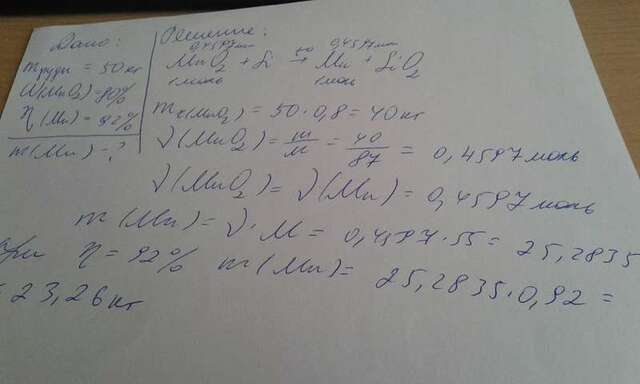 Дано:
mруды = 50 кг
ω(MnO2) = 80%
η(Mn) = 92%
m(Mn) - ?
Решение:
0,4597 моль 0,4597 моль
MnO2 + Si →t° Mn + SiO2
1 моль 1 моль
mч(MnO2) = 50·0,8 = 40 кг
ν(MnO2) = m/M = 40/87 = 0,4597 моль
ν(MnO2) = ν(Mn) = 0,4597 моль
m(Mn) = ν·M = 0,4597·55 = 25,2835
При η = 92% m(Mn) = 25,2835·0,92 =
= 23,26 кг